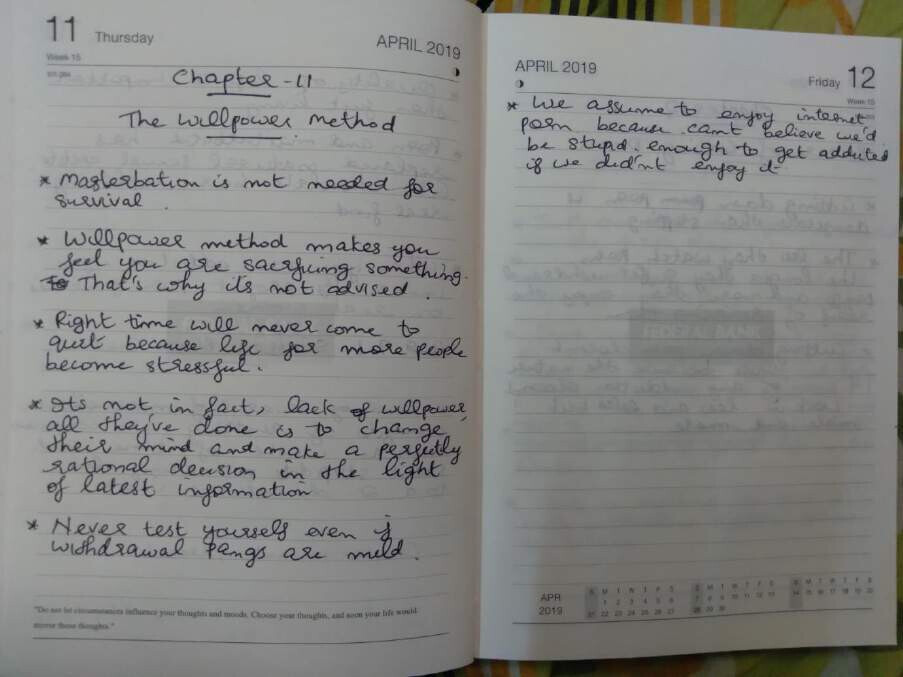 11 Thursday
APRIL 2019
Week 15
Chapter -11
The Willpower Method
* Masterbation is not needed for
survival.
* Willpower method makes you
feel you are sacrficing something.
That's why its not advised.
* Right time will never come to
quit because life for more people
become stressful.
* Its not in fact, lack of willpower,
all they've done is to change
their mind and make a perfectly
rational decision in the light
of latest information
* Never test yourself even if
withdrawal pangs are mild.
"Do not let circumstances influence your thoughts and moods. Choose your thoughts, and soon your life would
mirror those thoughts."
APRIL 2019
Friday 12
Week 15
* We assume to enjoy internet
porn because can't believe we'd
be stupid enough to get addicted
if we did'nt enjoy it
APR
2019
S M T W T F S
1 2 3 4 5 6
21 22 23 24 25 26 27
S M T W T F S
7 8 9 10 11 12 13
28 29 30
S M T W T F S
14 15 16 17 18 19 20